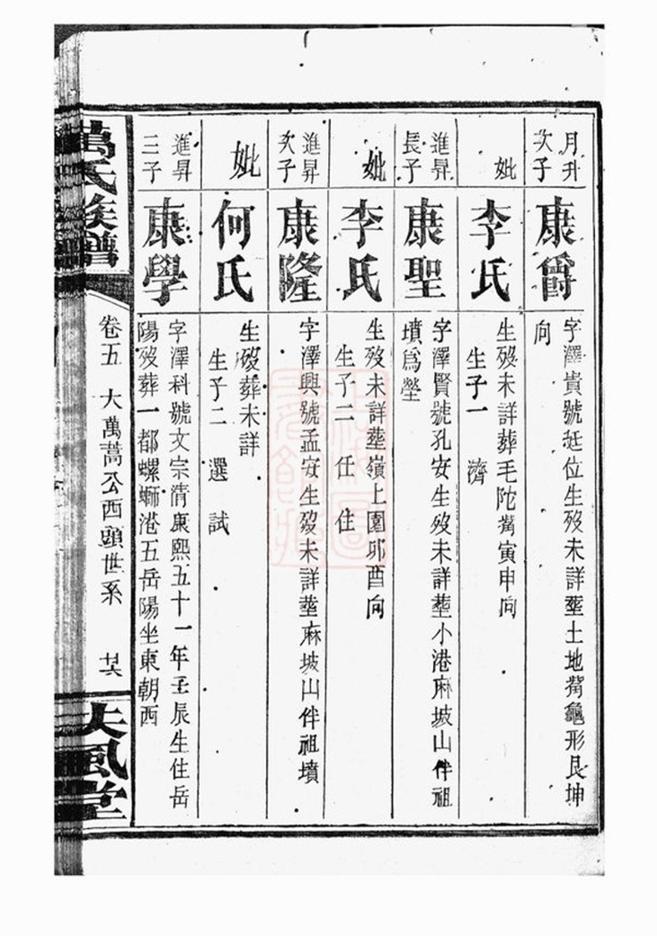 月升
次子
康爵
字澤貴號廷位生歿未詳塟土地觜龜形艮坤
向
妣
李氏
生歿未詳葬毛陀觜寅申向
生子一 濟
進昇
長子
康聖
字澤賢號孔安生歿未詳塟小港麻坡山伴祖
墳爲塋
妣
李氏
生歿未詳塟嶺上園卯酉向
生子二 任 住
進昇
次子
康隆
字澤興號孟安生歿未詳塟麻坡山伴祖墳
妣
何氏
生歿葬未詳
生子二 選 試
進昇
三子
康學
字澤科號文宗清康熙五十一年壬辰生住岳
陽歿葬一都螺螄港五岳陽坐東朝西
萬氏族譜
卷五 大萬蒿公西頭世系 廿六
扶風堂